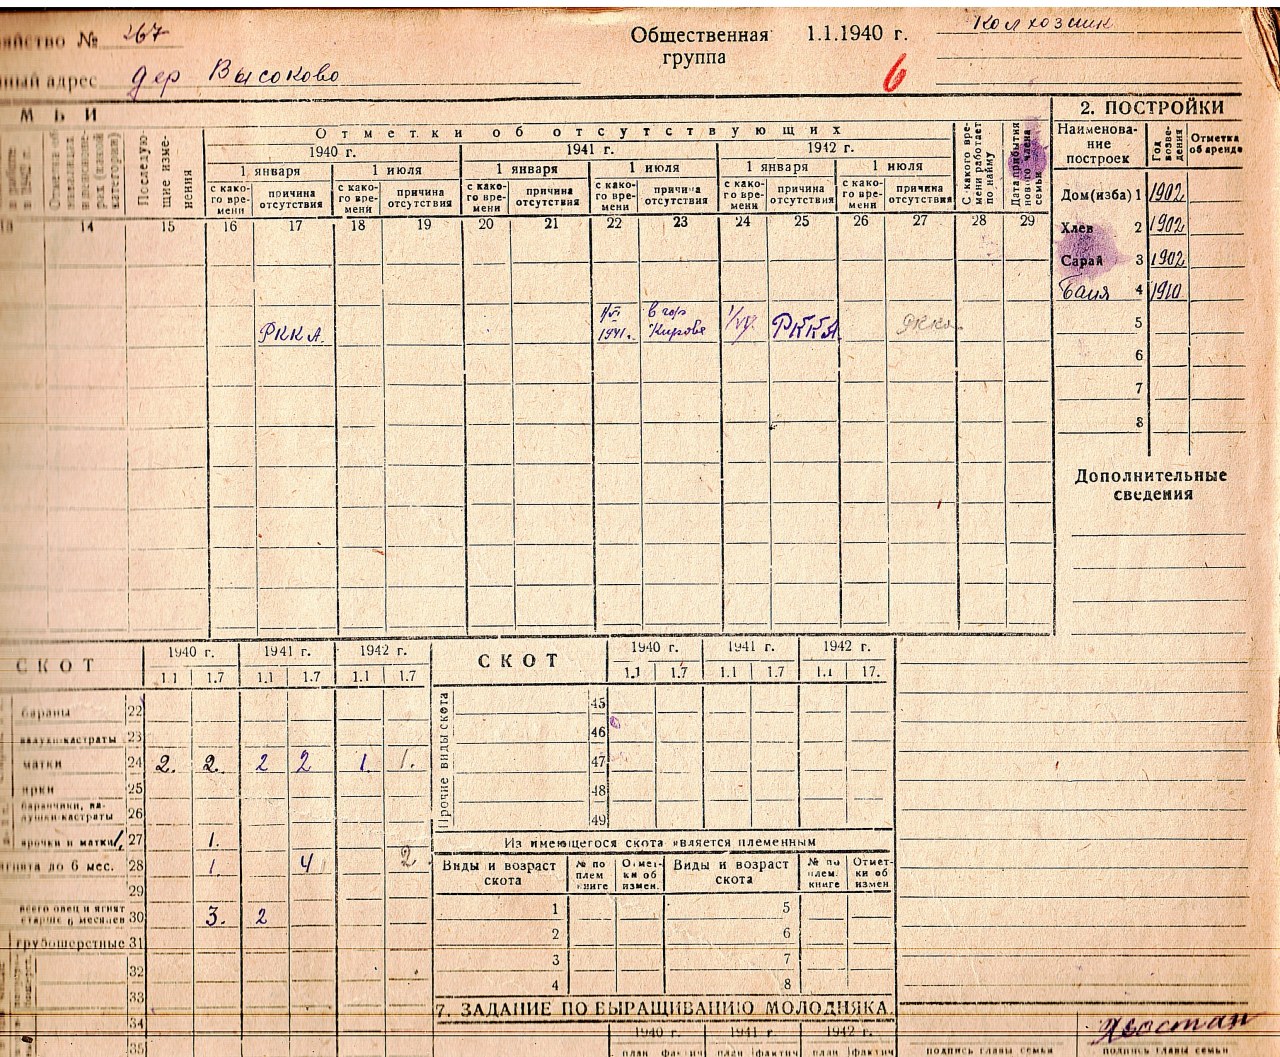 яйство № 267
Общественная группа 1.1.1940 г. Колхозник
6
ный адрес дер Высоково
М Ь И
Последующие изменения
Отметки об отсутствующих
1940 г. 1941 г. 1942 г.
1 января 1 июля 1 января 1 июля 1 января 1 июля
с какого времени причина отсутствия с какого времени причина отсутствия с какого времени причина отсутствия с какого времени причина отсутствия с какого времени причина отсутствия с какого времени причина отсутствия
С какого времени работает по найму
Дата прибытия нового члена семьи
13 14 15 16 17 18 19 20 21 22 23 24 25 26 27 28 29
РККА. 1/VI 1941г. в гор Кирове РККА РККА
2. ПОСТРОЙКИ
Наименование построек Год возведения Отметка об аренде
Дом(изба) 1 1902
Хлев 2 1902
Сарай 3 1902
Баня 4 1910
5
6
7
8
Дополнительные сведения
СКОТ 1940 г. 1941 г. 1942 г.
1.1 1.7 1.1 1.7 1.1 1.7
бараны 22
валухи-кастраты 23
матки 24 2. 2. 2 2 1. 1.
ярки 25
баранчики, валушки-кастраты 26
ярочки и матки 27 1.
ягнята до 6 мес. 28 1 4 2
29
всего овец и ягнят старше 6 месяцев 30 3. 2
грубошерстные 31
32
33
34
35
СКОТ 1940 г. 1941 г. 1942 г.
1.1 1.7 1.1 1.7 1.1 17.
Прочие виды скота
45
46
47
48
49
Из имеющегося скота является племенным
Виды и возраст скота № по плем книге Отметки об измен. Виды и возраст скота № по плем. книге Отметки об измен
1 5
2 6
3 7
4 8
7. ЗАДАНИЕ ПО ВЫРАЩИВАНИЮ МОЛОДНЯКА.
1940 г. 1941 г. 1942 г.
план фактич план фактич план фактич
подпись главы семьи подпись главы семьи